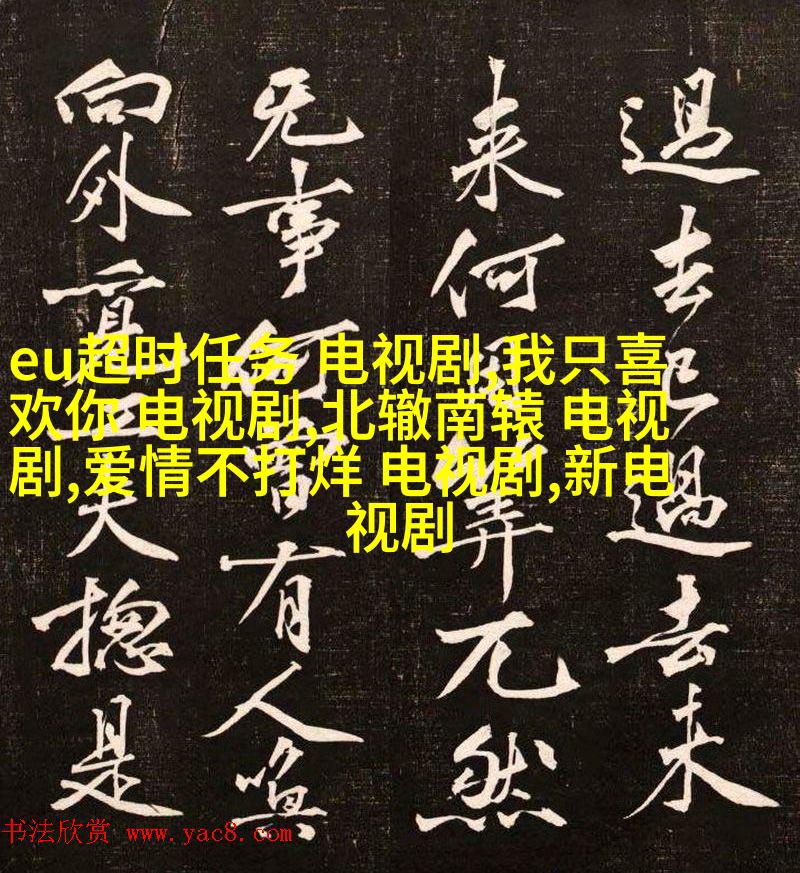 過去已過去未
来何筭兀然
无事何曾有人喚
向外覓夫揔是
eu超时任务 电视剧,我只喜
欢你 电视剧,北辙南辕 电视
剧,爱情不打烊 电视剧,新电
视剧
书法欣赏 www.yac8.com